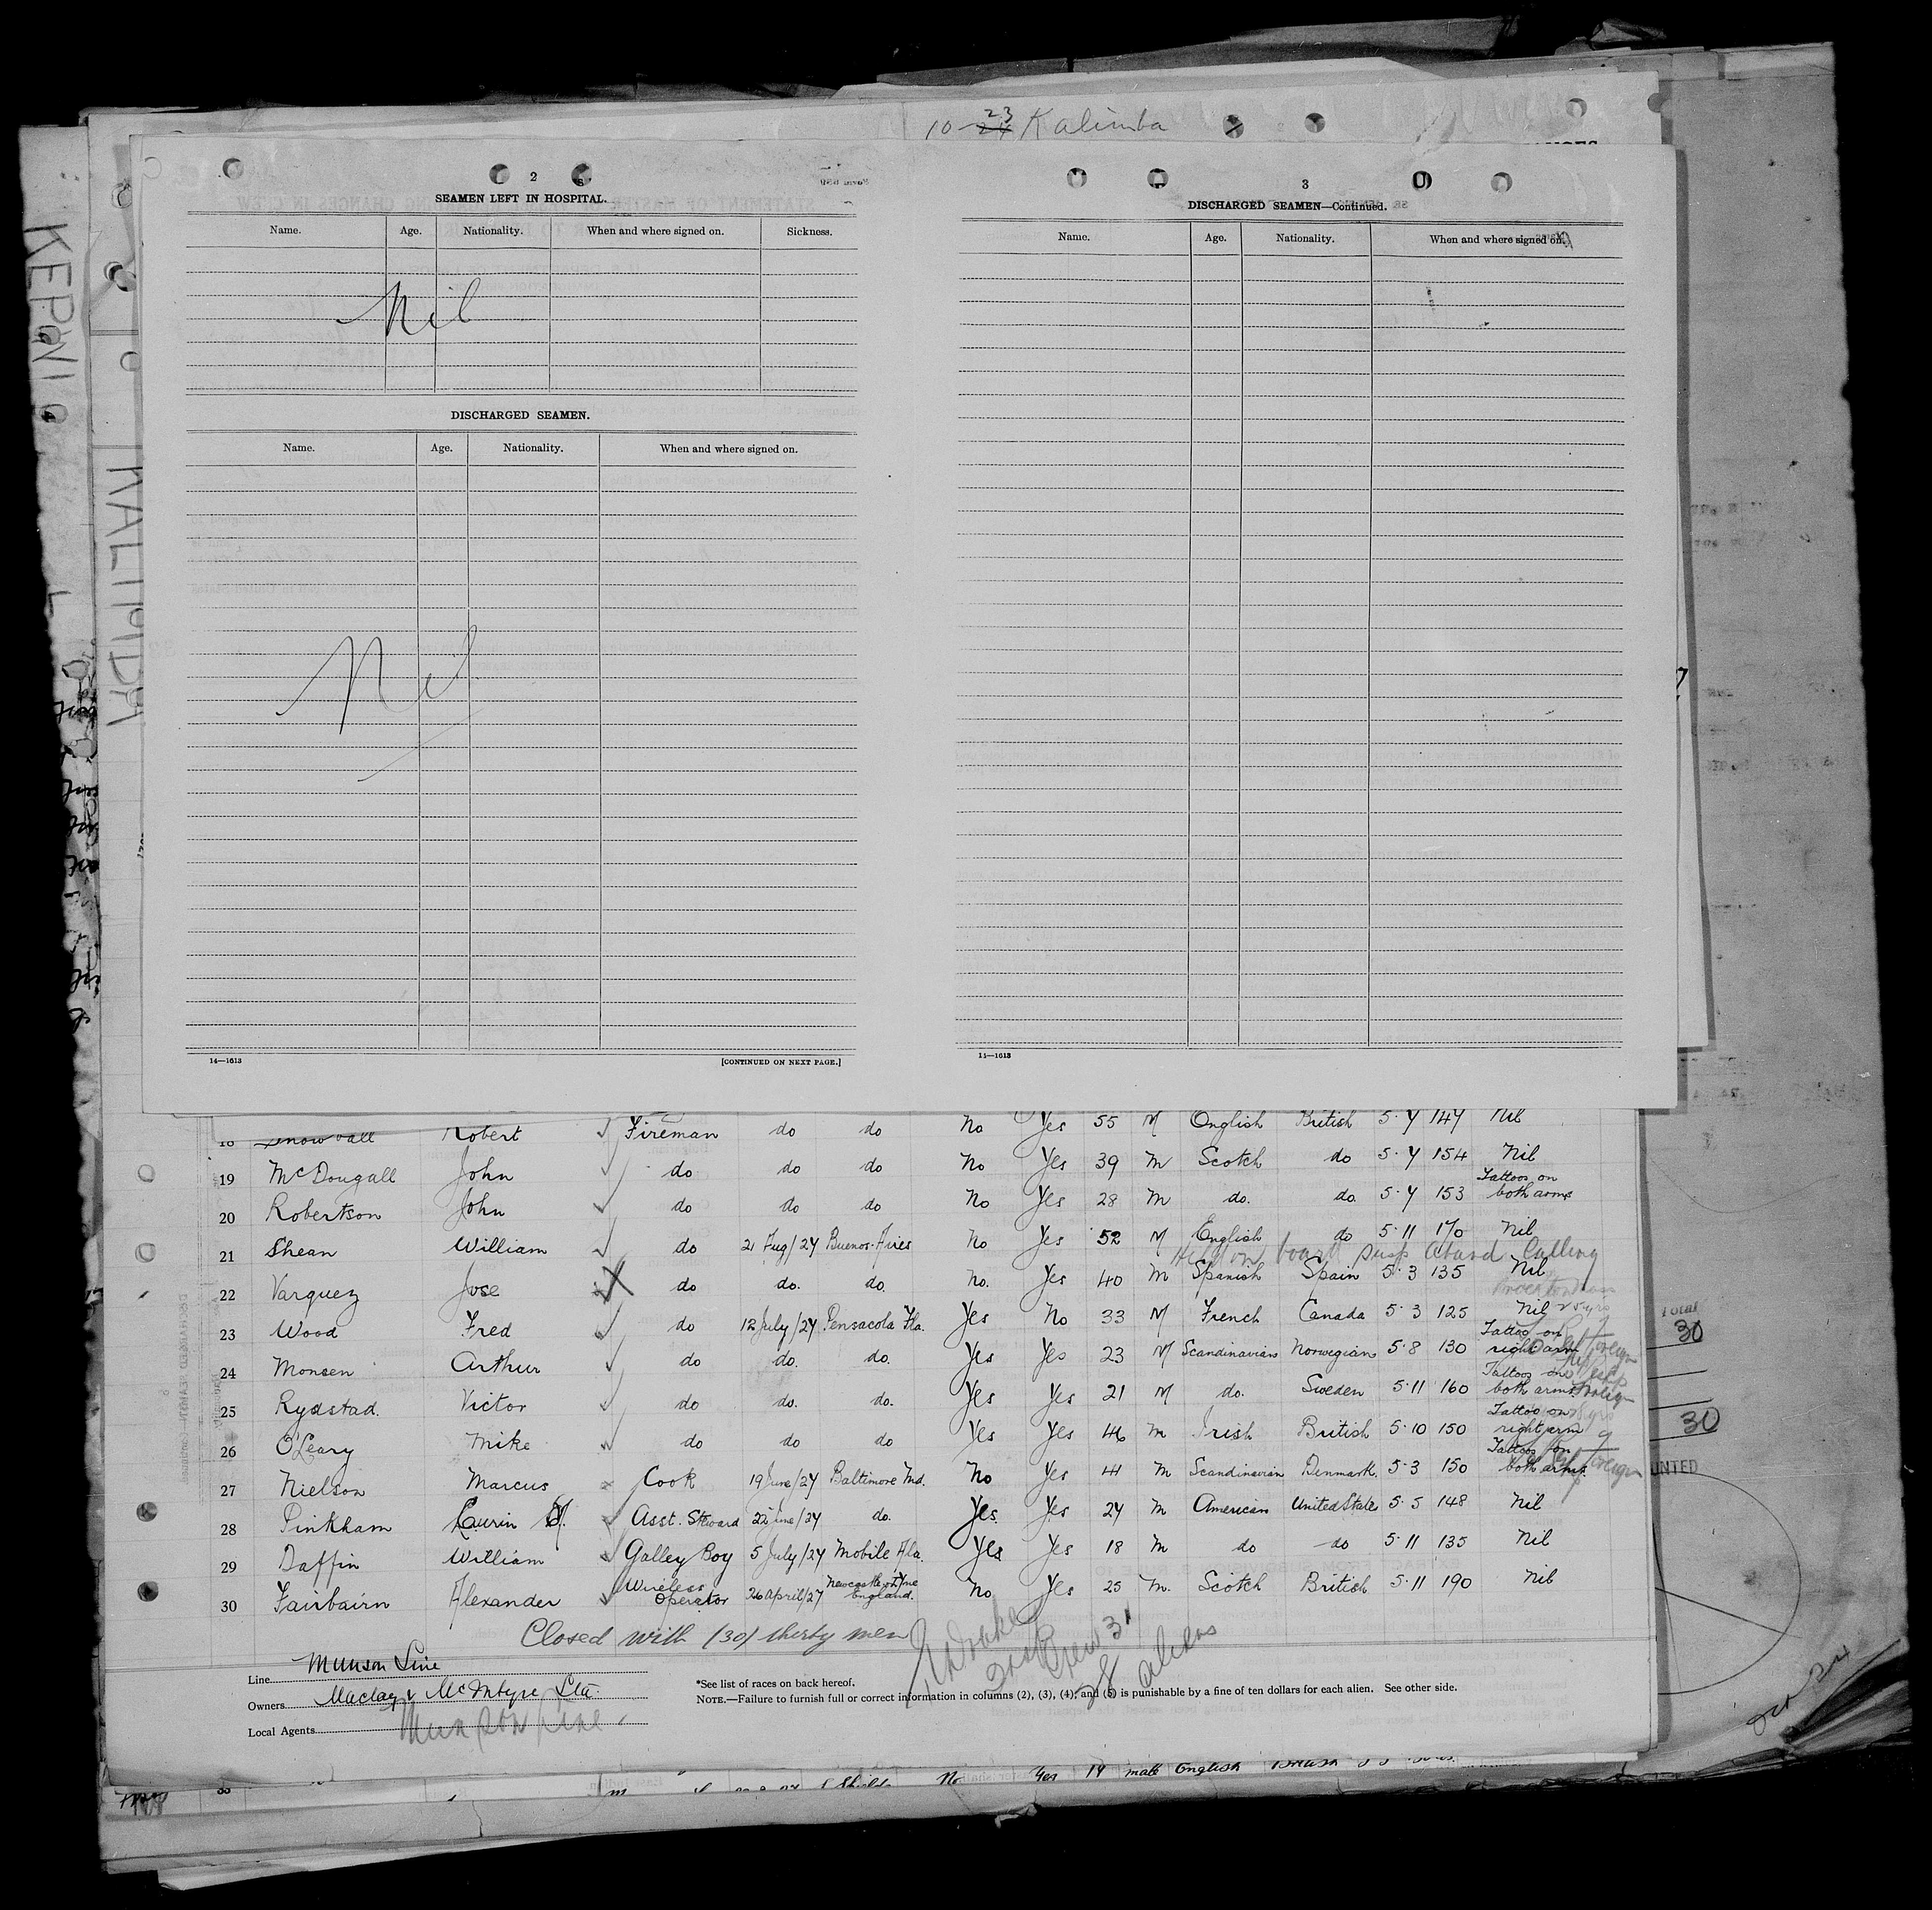 10-23 Kalimba
2
SEAMEN LEFT IN HOSPITAL.
Name. Age. Nationality. When and where signed on. Sickness.
Nil
DISCHARGED SEAMEN.
Name. Age. Nationality. When and where signed on.
Nil
14—1613 [CONTINUED ON NEXT PAGE.]
3
DISCHARGED SEAMEN—Continued.
Name. Age. Nationality. When and where signed on.
14—1613
18 Snowball Robert Fireman do do No Yes 55 M English British 5·7 147 Nil
19 McDougall John do do do No Yes 39 M Scotch do 5·7 154 Nil
20 Robertson John do do do No Yes 28 M do. do. 5·7 153 Tattoos on both arms
21 Shean William do 21 Aug/24 Buenos-Aires No Yes 52 M English do 5·11 170 Nil
Held on board
22 Varquez Jose do do. do. No. Yes 40 M Spanish Spain 5·3 135 Nil
23 Wood Fred do 12 July/24 Pensacola Fla. Yes No 33 M French Canada 5·3 125 Nil
24 Monsen Arthur do do. do. Yes Yes 23 M Scandinavian Norwegian 5·8 130 Tattoo on right arm
25 Rydstad. Victor do do. do. Yes Yes 21 M do. Sweden 5·11 160 Tattoos on both arms
26 O'Leary Mike do do do Yes Yes 46 M Irish British 5·10 150 Tattoo on right arm
27 Nielson Marcus Cook 19 June/24 Baltimore Md. No Yes 41 M Scandinavian Denmark. 5·3 150 Tattoos on both arms.
28 Pinkham Laurin Asst. Steward 22 June/24 do. Yes. Yes 24 M American United State 5·5 148 Nil
29 Daffin William Galley Boy 5 July/24 Mobile Ala. Yes Yes 18 M do do 5·11 135 Nil
30 Fairbairn Alexander Wireless Operator 26 April/24 Newcastle England. No Yes 25 M. Scotch British 5·11 190 Nil
Closed with (30) thirty men
Crew 31
28 aliens
Line Munson Line
Owners Maclay & McIntyre Ltd.
Local Agents Munson Line
*See list of races on back hereof.
NOTE.—Failure to furnish full or correct information in columns (2), (3), (4), and (5) is punishable by a fine of ten dollars for each alien. See other side.
Total
30
30
No Yes 19 male English